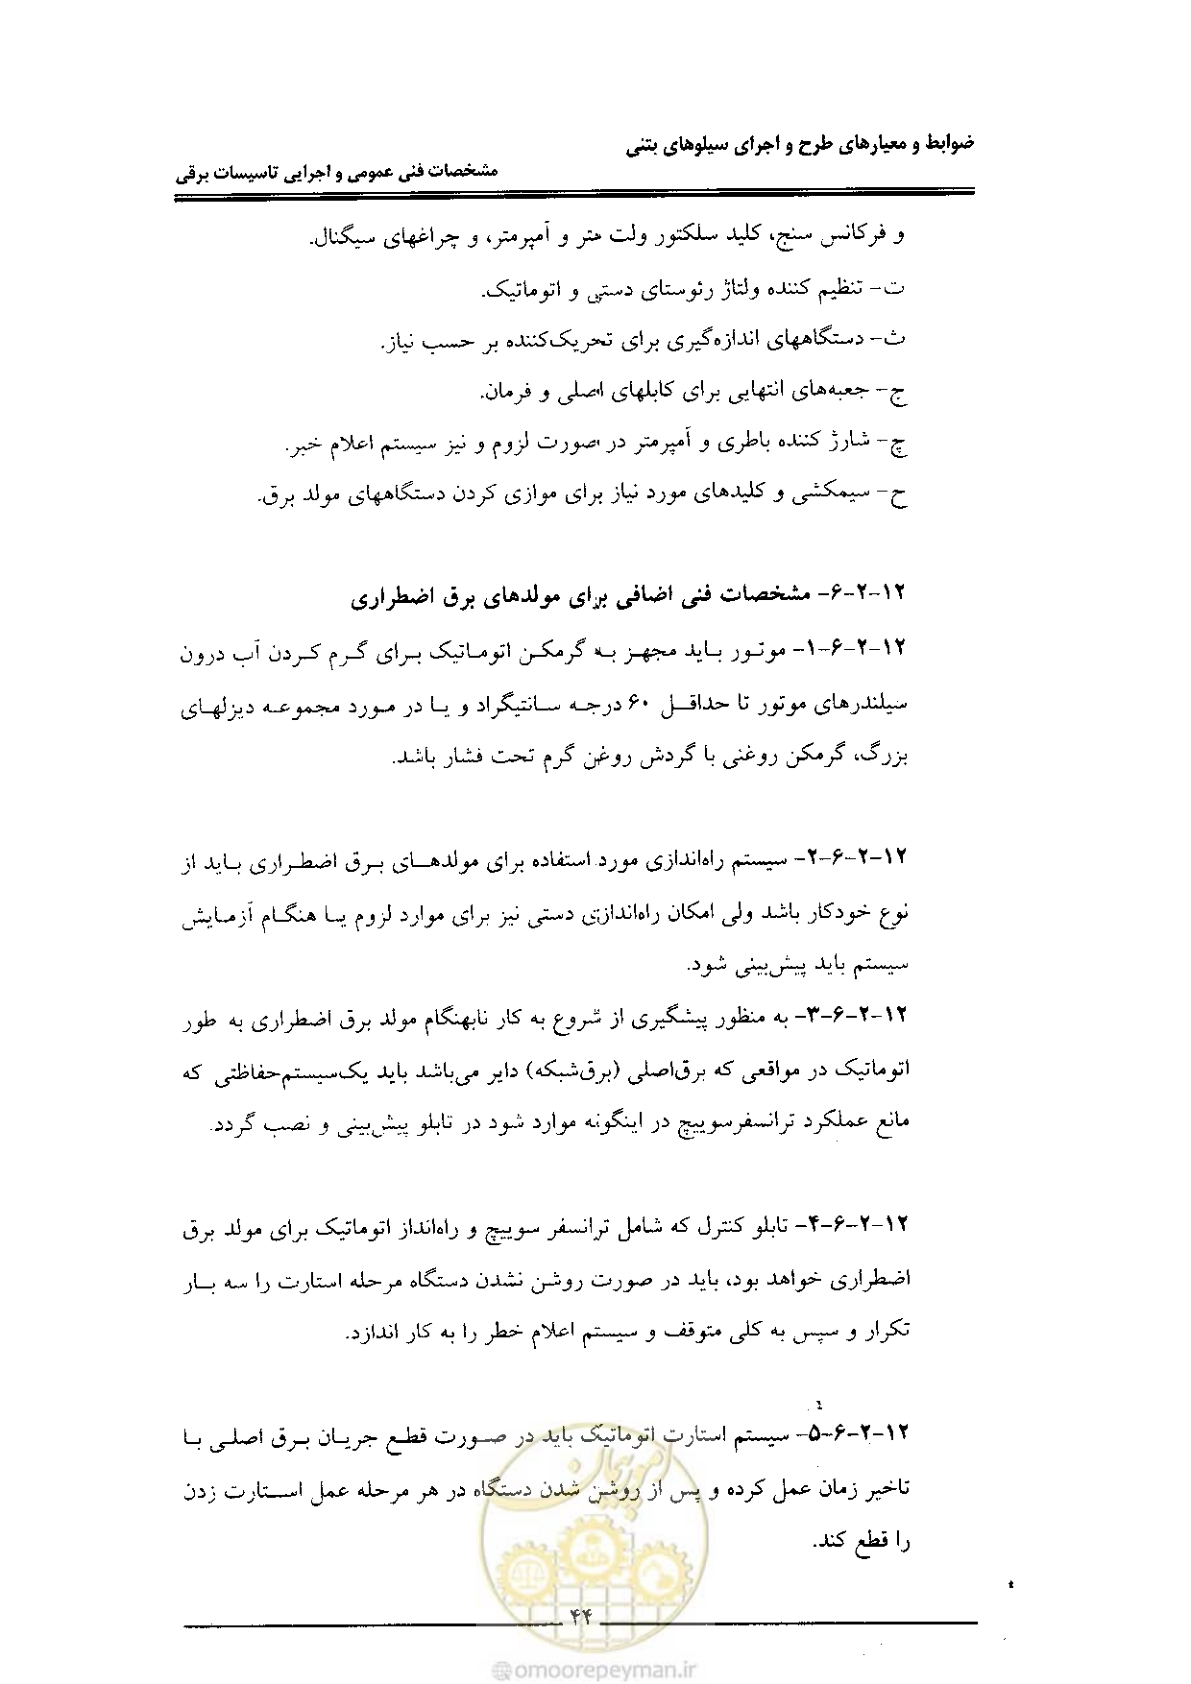 ضوابط و معیارهای طرح و اجرای سیلوهای بتنی
مشخصات فنی عمومی و اجرایی تاسیسات برقی
و فرکانس سنج، کلید سلکتور ولت متر و آمپرمتر، و چراغهای سیگنال.
ت- تنظیم کننده ولتاژ رئوستای دستی و اتوماتیک.
ث- دستگاههای اندازه‌گیری برای تحریک‌کننده بر حسب نیاز.
ج- جعبه‌های انتهایی برای کابلهای اصلی و فرمان.
چ- شارژ کننده باطری و آمپرمتر در صورت لزوم و نیز سیستم اعلام خبر.
ح- سیمکشی و کلیدهای مورد نیاز برای موازی کردن دستگاههای مولد برق.
۱۲-۲-۶- مشخصات فنی اضافی برای مولدهای برق اضطراری
۱۲-۲-۶-۱- موتور باید مجهز به گرمکن اتوماتیک برای گرم کردن آب درون
سیلندرهای موتور تا حداقل ۶۰ درجه سانتیگراد و یا در مورد مجموعه دیزلهای
بزرگ، گرمکن روغنی با گردش روغن گرم تحت فشار باشد.
۱۲-۲-۶-۲- سیستم راه‌اندازی مورد استفاده برای مولدهای برق اضطراری باید از
نوع خودکار باشد ولی امکان راه‌اندازی دستی نیز برای موارد لزوم یا هنگام آزمایش
سیستم باید پیش‌بینی شود.
۱۲-۲-۶-۳- به منظور پیشگیری از شروع به کار نابهنگام مولد برق اضطراری به طور
اتوماتیک در مواقعی که برق‌اصلی (برق‌شبکه) دایر می‌باشد باید یک‌سیستم‌حفاظتی که
مانع عملکرد ترانسفرسوییچ در اینگونه موارد شود در تابلو پیش‌بینی و نصب گردد.
۱۲-۲-۶-۴- تابلو کنترل که شامل ترانسفر سوییچ و راه‌انداز اتوماتیک برای مولد برق
اضطراری خواهد بود، باید در صورت روشن نشدن دستگاه مرحله استارت را سه بار
تکرار و سپس به کلی متوقف و سیستم اعلام خطر را به کار اندازد.
۱۲-۲-۶-۵- سیستم استارت اتوماتیک باید در صورت قطع جریان برق اصلی با
تاخیر زمان عمل کرده و پس از روشن شدن دستگاه در هر مرحله عمل استارت زدن
را قطع کند.
امور پیمان
۴۴
@omoorepeyman.ir